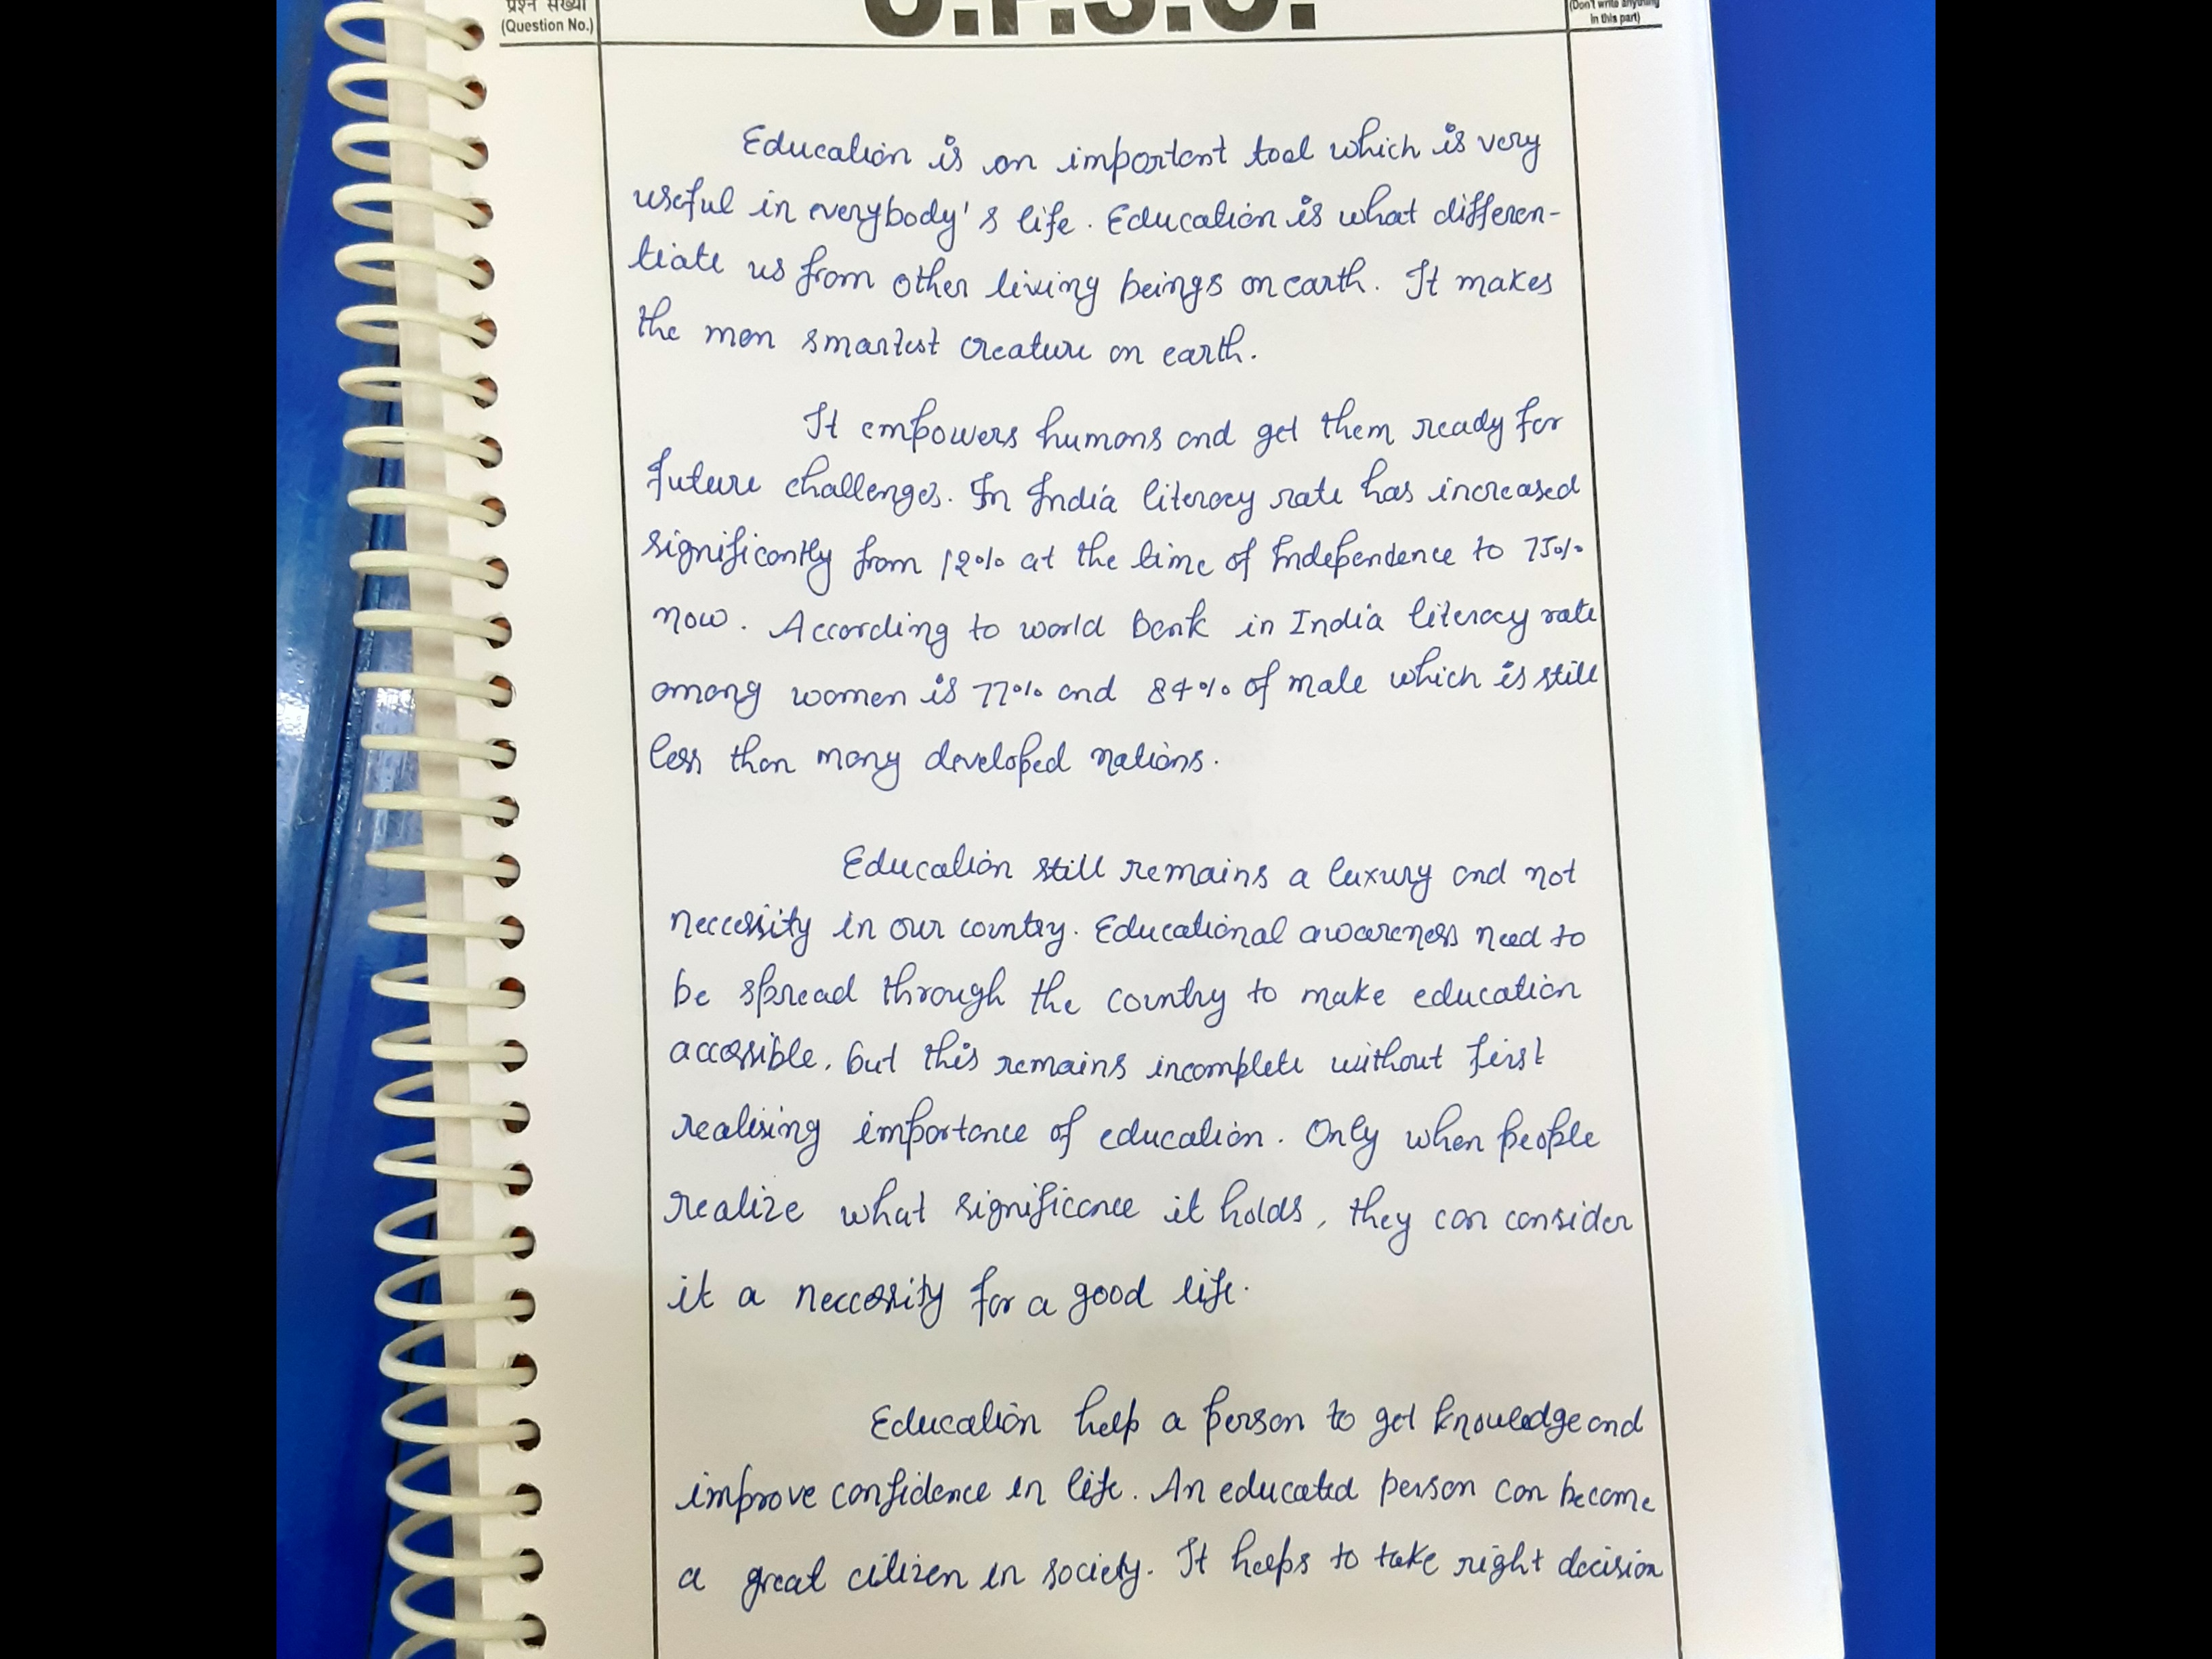 प्रश्न संख्या
(Question No.)
U.P.S.C.
(Don't write anything
in this part)
Education is an important tool which is very
useful in everybody's life. Education is what differen-
tiate us from other living beings on earth. It makes
the man smartest creature on earth.
It empowers humans and get them ready for
future challenges. In India literacy rate has increased
significantly from 12% at the time of Independence to 75%
now. According to world bank in India literacy rate
among women is 77% and 84% of male which is still
less than many developed nations.
Education still remains a luxury and not
neccessity in our country. Educational awareness need to
be spread through the country to make education
accessible, but this remains incomplete without first
realising importance of education. Only when people
realize what significance it holds, they can consider
it a neccessity for a good life.
Education help a person to get knowledge and
improve confidence in life. An educated person can become
a great citizen in society. It helps to take right decision